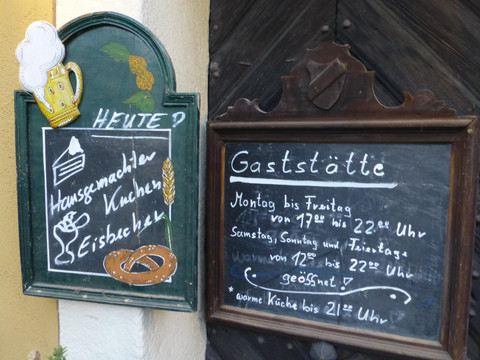 HEUTE
Hausgemachter
Kuchen
Eisbecher
Gaststätte
Montag bis Freitag
von 17⁰⁰ bis 22⁰⁰ Uhr
Samstag, Sonntag und Feiertags
von 12⁰⁰ bis 22⁰⁰ Uhr
geöffnet!
*warme Küche bis 21⁰⁰ Uhr